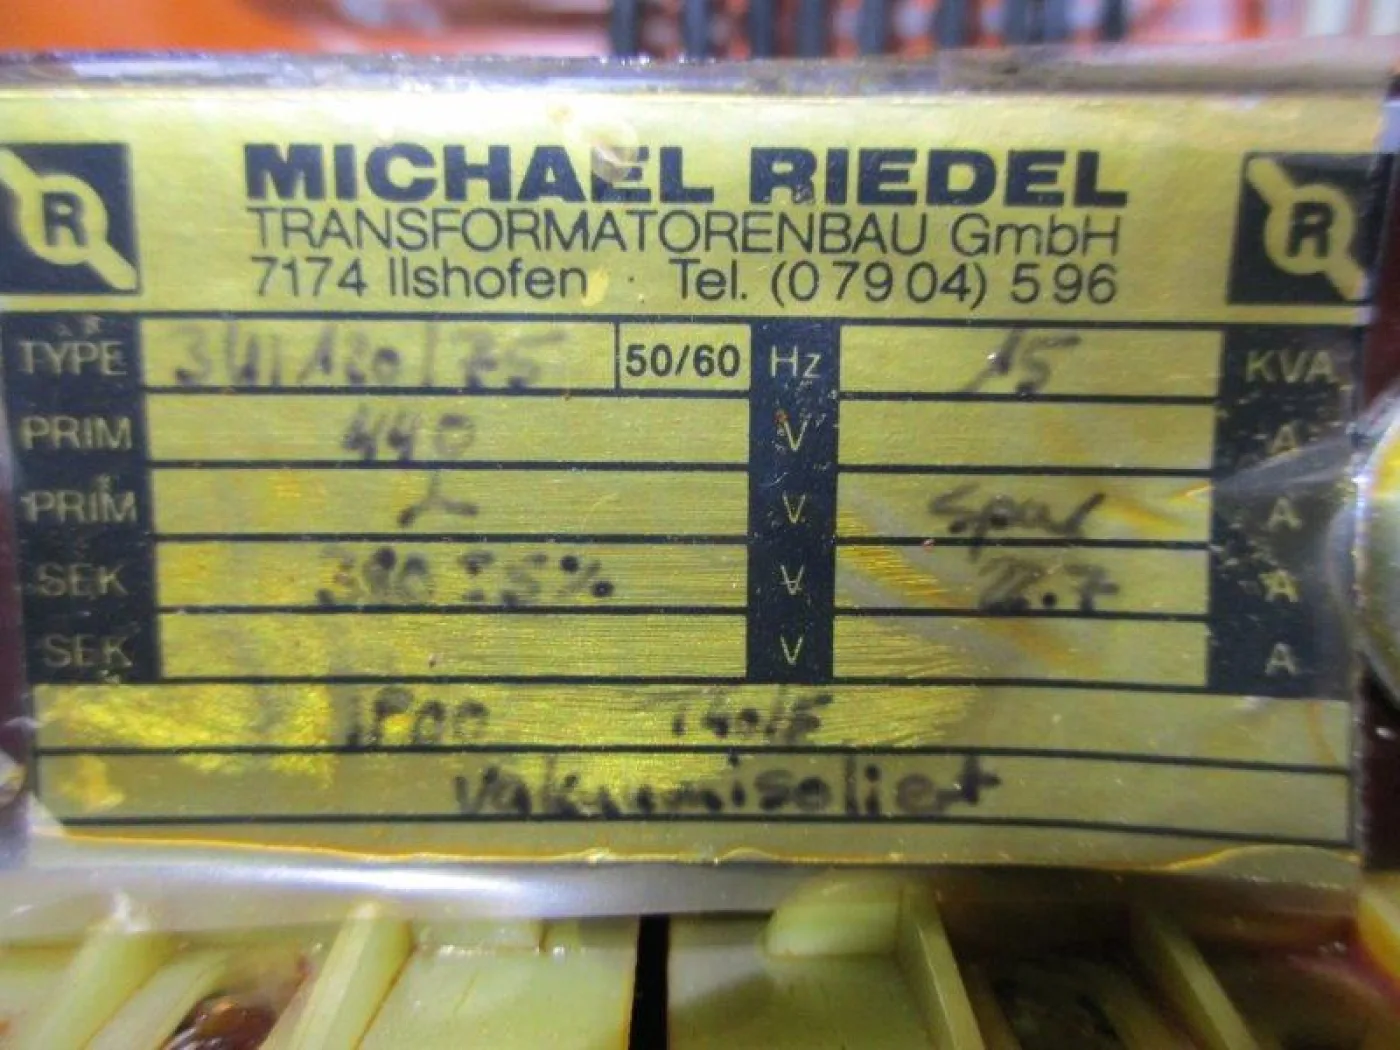 R MICHAEL RIEDEL R
TRANSFORMATORENBAU GmbH
7174 Ilshofen · Tel. (0 79 04) 5 96
TYPE 3UI 120/75 50/60 Hz 15 KVA
PRIM 440 V A
PRIM V Spar A
SEK 380 ±5% V A
SEK V A
IP00 T40/E
vakuumisoliert